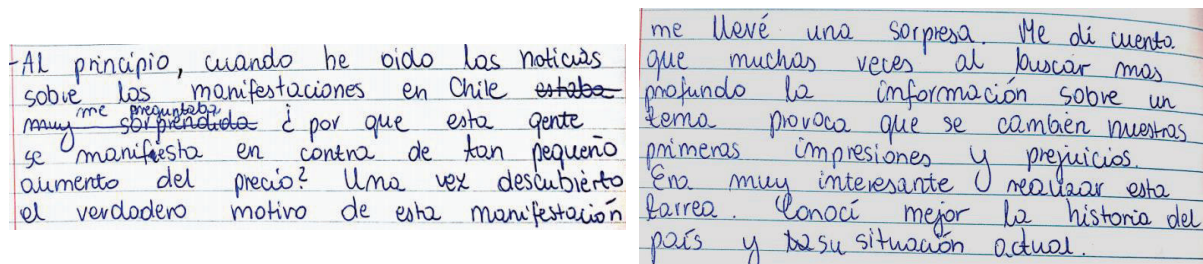 -Al principio, cuando he oido las noticias
sobre las manifestaciones en Chile estaba
me preguntaba
muy sorprendida ¿ por que esta gente
se manifiesta en contra de tan pequeño
aumento del precio? Una vez descubierto
el verdadero motivo de esta manifestación
me llevé una sorpresa. Me di cuenta
que muchas veces al buscar mas
profundo la información sobre un
tema provoca que se cambién nuestras
primeras impresiones y prejuicios.
Era muy interesante realizar esta
tarrea. Conocí mejor la historia del
país y su situación actual.